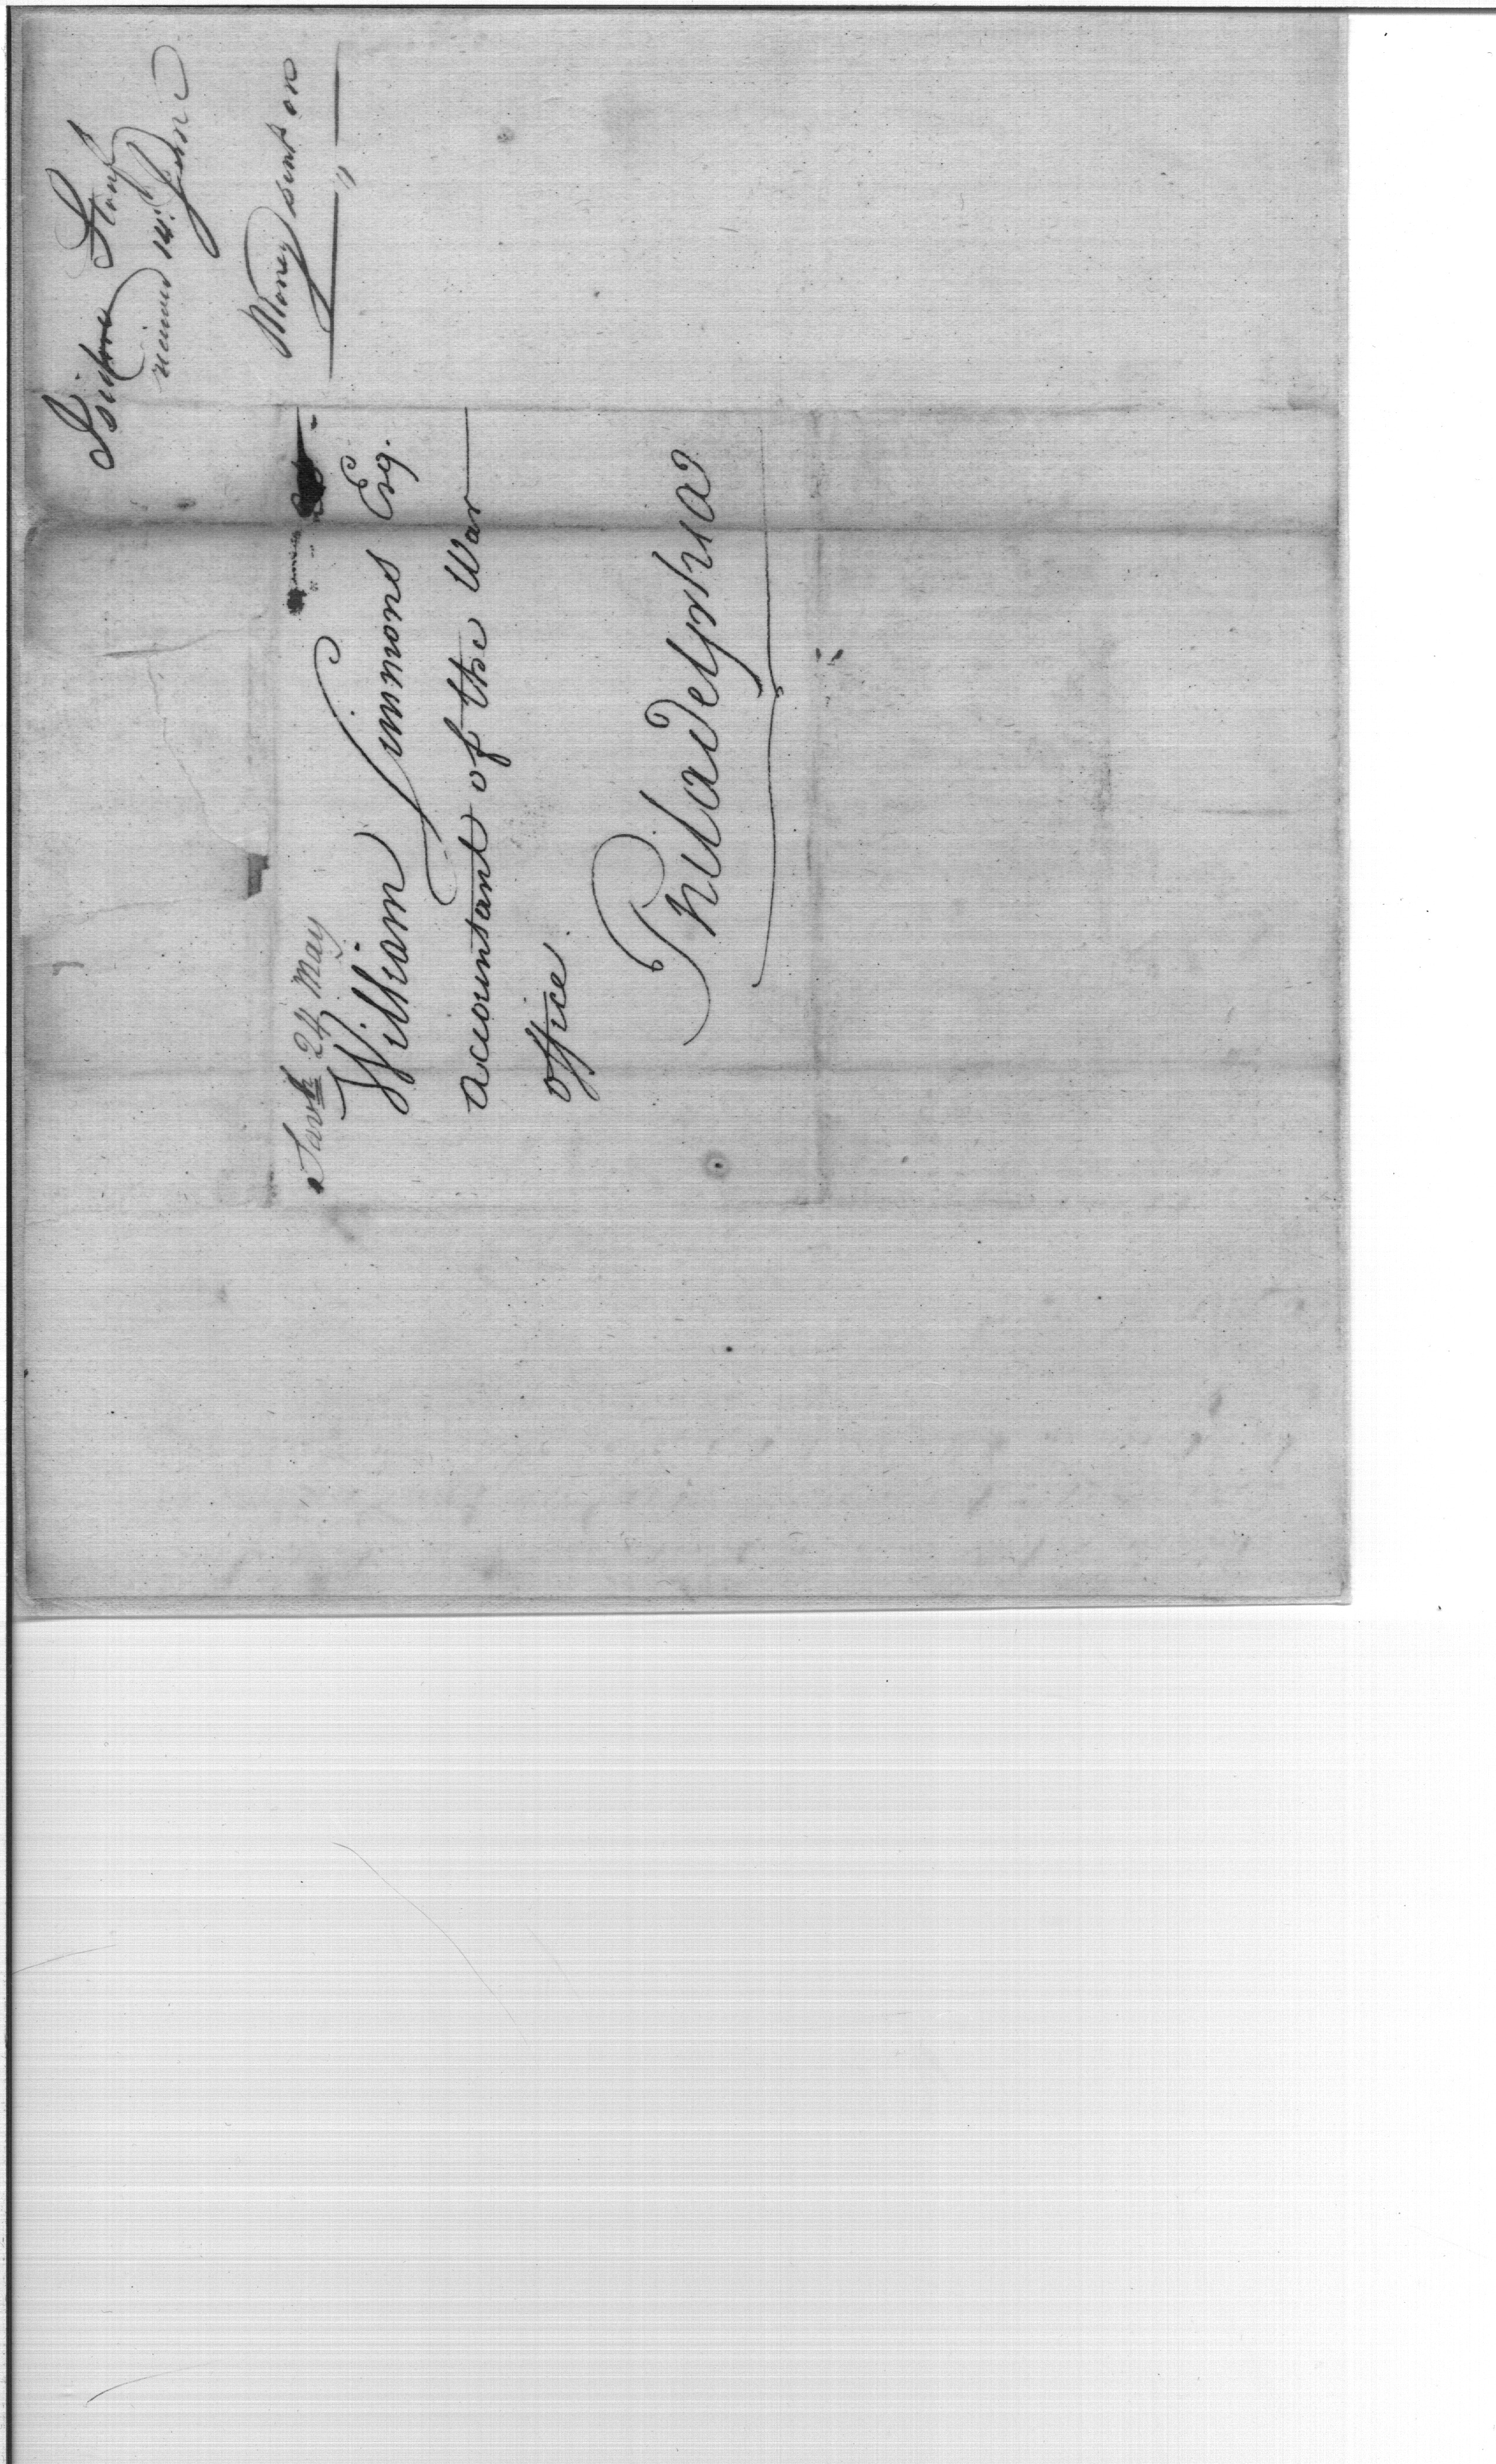 Isidore Stouf
received 14th June
Money sent on
Savh 24 May
William Simmons Esq.
accountant of the War
office.
Philadelphia